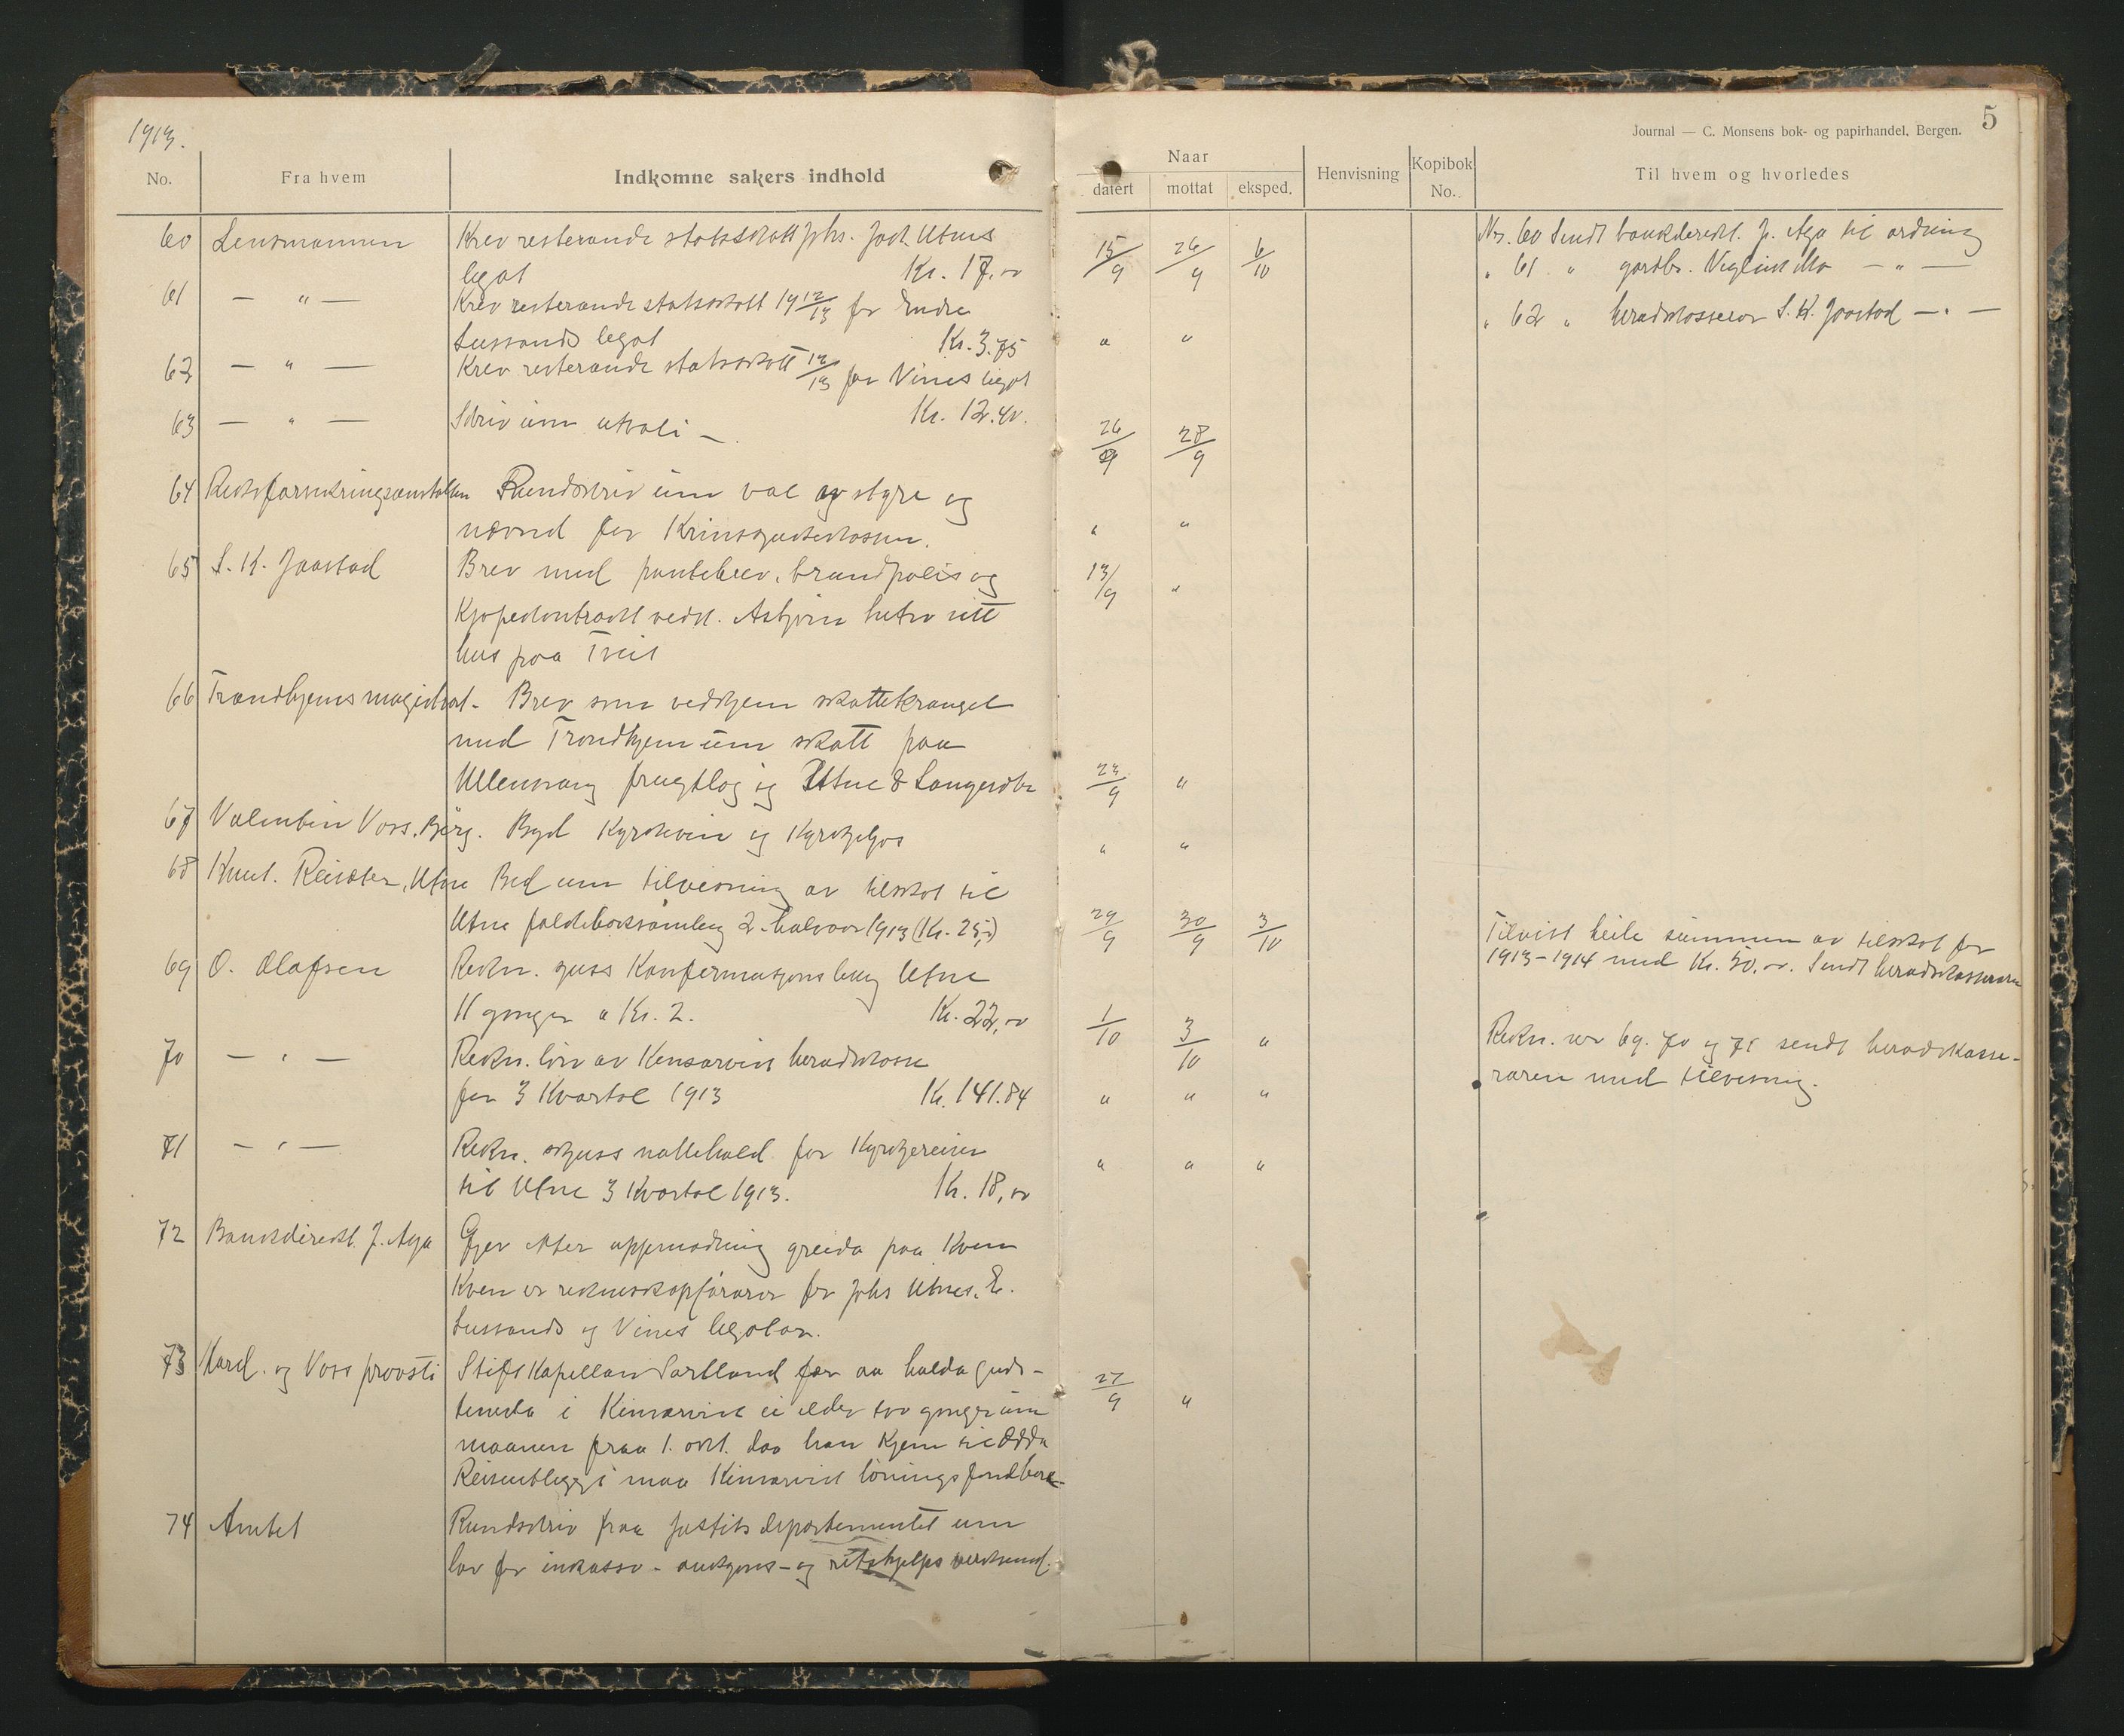 1913.
5
Journal — C. Monsens bok- og papirhandel, Bergen.
No.
Fra hvem
Indkomne sakers indhold
Naar
datert
mottat
eksped.
Henvisning
Kopibok No.
Til hvem og hvorledes
60 Lensmannen Krev resterande statsskatt Johs. Jach. Utnes 15/9 26/9 6/10 Nr. 60 Sendt bankdirekt. J. Aga til ordning
legat Kr. 17,00 " 61 " gardbr. Mo — " —
61 — " — Krev resterande statsskatt 1912/13 for Endre " 62 " heradskasserar S. K. Jaastad — " —
Lussands legat Kr. 3.75 " "
62 — " — Krev resterande statsskatt 12/13 for Vines legat
Kr. 12.40.
63 — " — Skriv um utvali — 26/9 28/9
64 Riksforsikringsanstalten Rundskriv um val av styre og
nævnd for Krinssjukekassen. " "
65 S. K. Jaastad Brev med pantebrev, brandpolis og 13/9 "
Kjøpekontrakt vedk. Asbjørn sitt
hus paa Tveit
66 Trondhjems magistrat - Brev som vedkjem skattekrangel
med Trondhjem um skatt paa
Ullensvang frugtlag og Utne & 23/9 "
67 Valentin Voss, Bjørg. Byd Kyrkjevin og Kyrkjeljos " "
68 Knut. Reisæter, Utne Bed um tilvisning av tilskot til
Utne folkeboksamling 2. halvaar 1913 (Kr. 25,00) 29/9 30/9 3/10 Tilvist heile summen av tilskot for
1913-1914 med Kr. 50,00. Sendt heradskasseraren
69 O. Olafsen Rekn. skjuss Konfirmasjons Utne
11 gonger a Kr. 2. Kr. 22,00 1/10 3/10 " Rekn. nr 69. 70 og 71 sendt heradskasse-
raren med tilvisning.
70 — " — Rekn. løn av Kinsarvik heradskasse
for 3 Kvartal 1913 Kr. 141.84 " " "
71 — " — Rekn. skjuss nattehald for Kyrkjereiser " " "
til Utne 3 Kvartal 1913. Kr. 18,00
72 Bankdirekt. J. Aga Gjev etter uppmoding greida paa Kven
Kven er rekneskapsførarar for Johs Utnes, E.
Lussands og Vines legatar.
73 Hard. og Voss proosti Stiftskapellan Sørtland fær aa halda guds- 27/9 "
tenesta i Kinsarvik ei elder tvo gonger um
maanen fraa 1. okt. daa han kjem til Odda
Reiseutlegg i maa Kinsarvik løningsfond bera
74 Amtet Rundskriv fraa Justitsdepartementet um
lov for inkasso- auksjons- og rettshjelps verksemd.